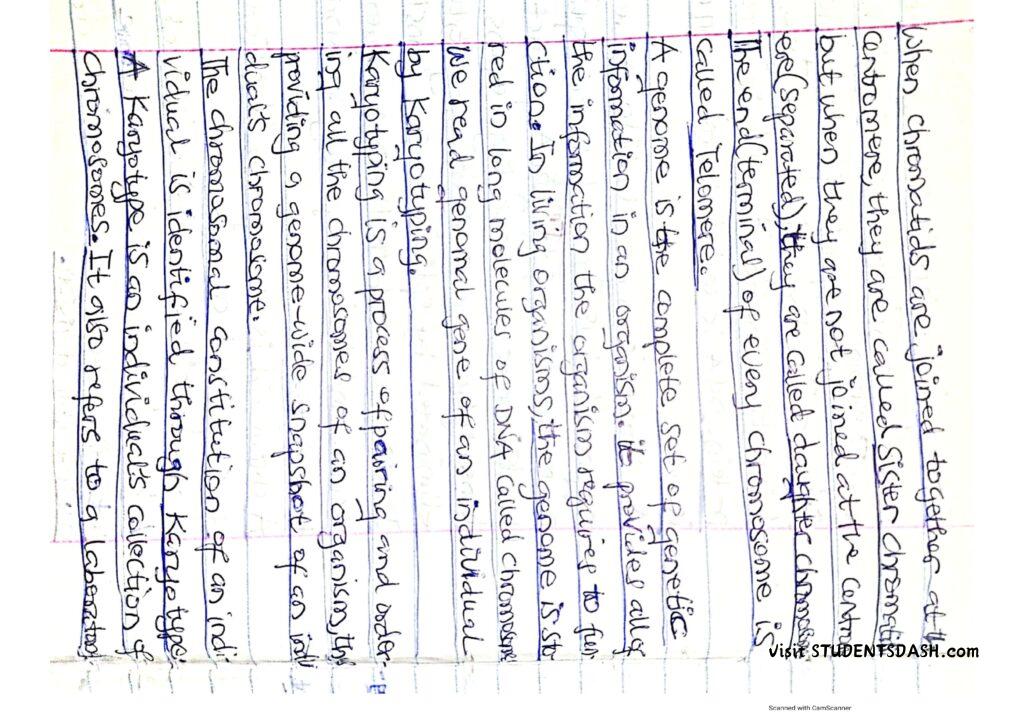 When chromatids are joined together at th
centromere, they are called Sister chromati
but when they are not joined at the centro
ere(separated), they are called daughter chromoso
The end(terminal) of every chromosome is
called Telomere.
A genome is the complete set of genetic
information in an organism. It provides all of
the information the organism requires to fun
ction. In living organisms, the genome is sto
red in long molecules of DNA called chromosome
We read genomal gene of an individual
by Karyotyping.
Karyotyping is a process of pairing and order-
ing all the chromosomes of an organism, th
providing a genome-wide snapshot of an indi
dual's chromosome.
The chromosomal constitution of an indi
vidual is identified through Karyotype.
A Karyotype is an individual's collection of
chromosomes. It also refers to a laboratory
Visit STUDENTSDASH.com
Scanned with CamScanner